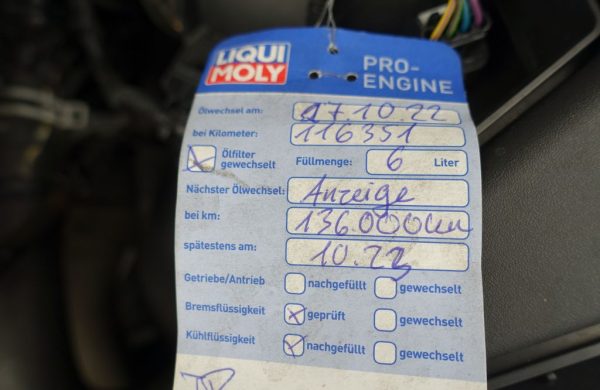 LIQUI MOLY PRO-ENGINE
Ölwechsel am: 07.10.22
bei Kilometer: 116351
Ölfilter gewechselt Füllmenge: 6 Liter
Nächster Ölwechsel: Anzeige
bei km: 136.000km
spätestens am: 10.23
Getriebe/Antrieb nachgefüllt gewechselt
Bremsflüssigkeit geprüft gewechselt
Kühlflüssigkeit nachgefüllt gewechselt